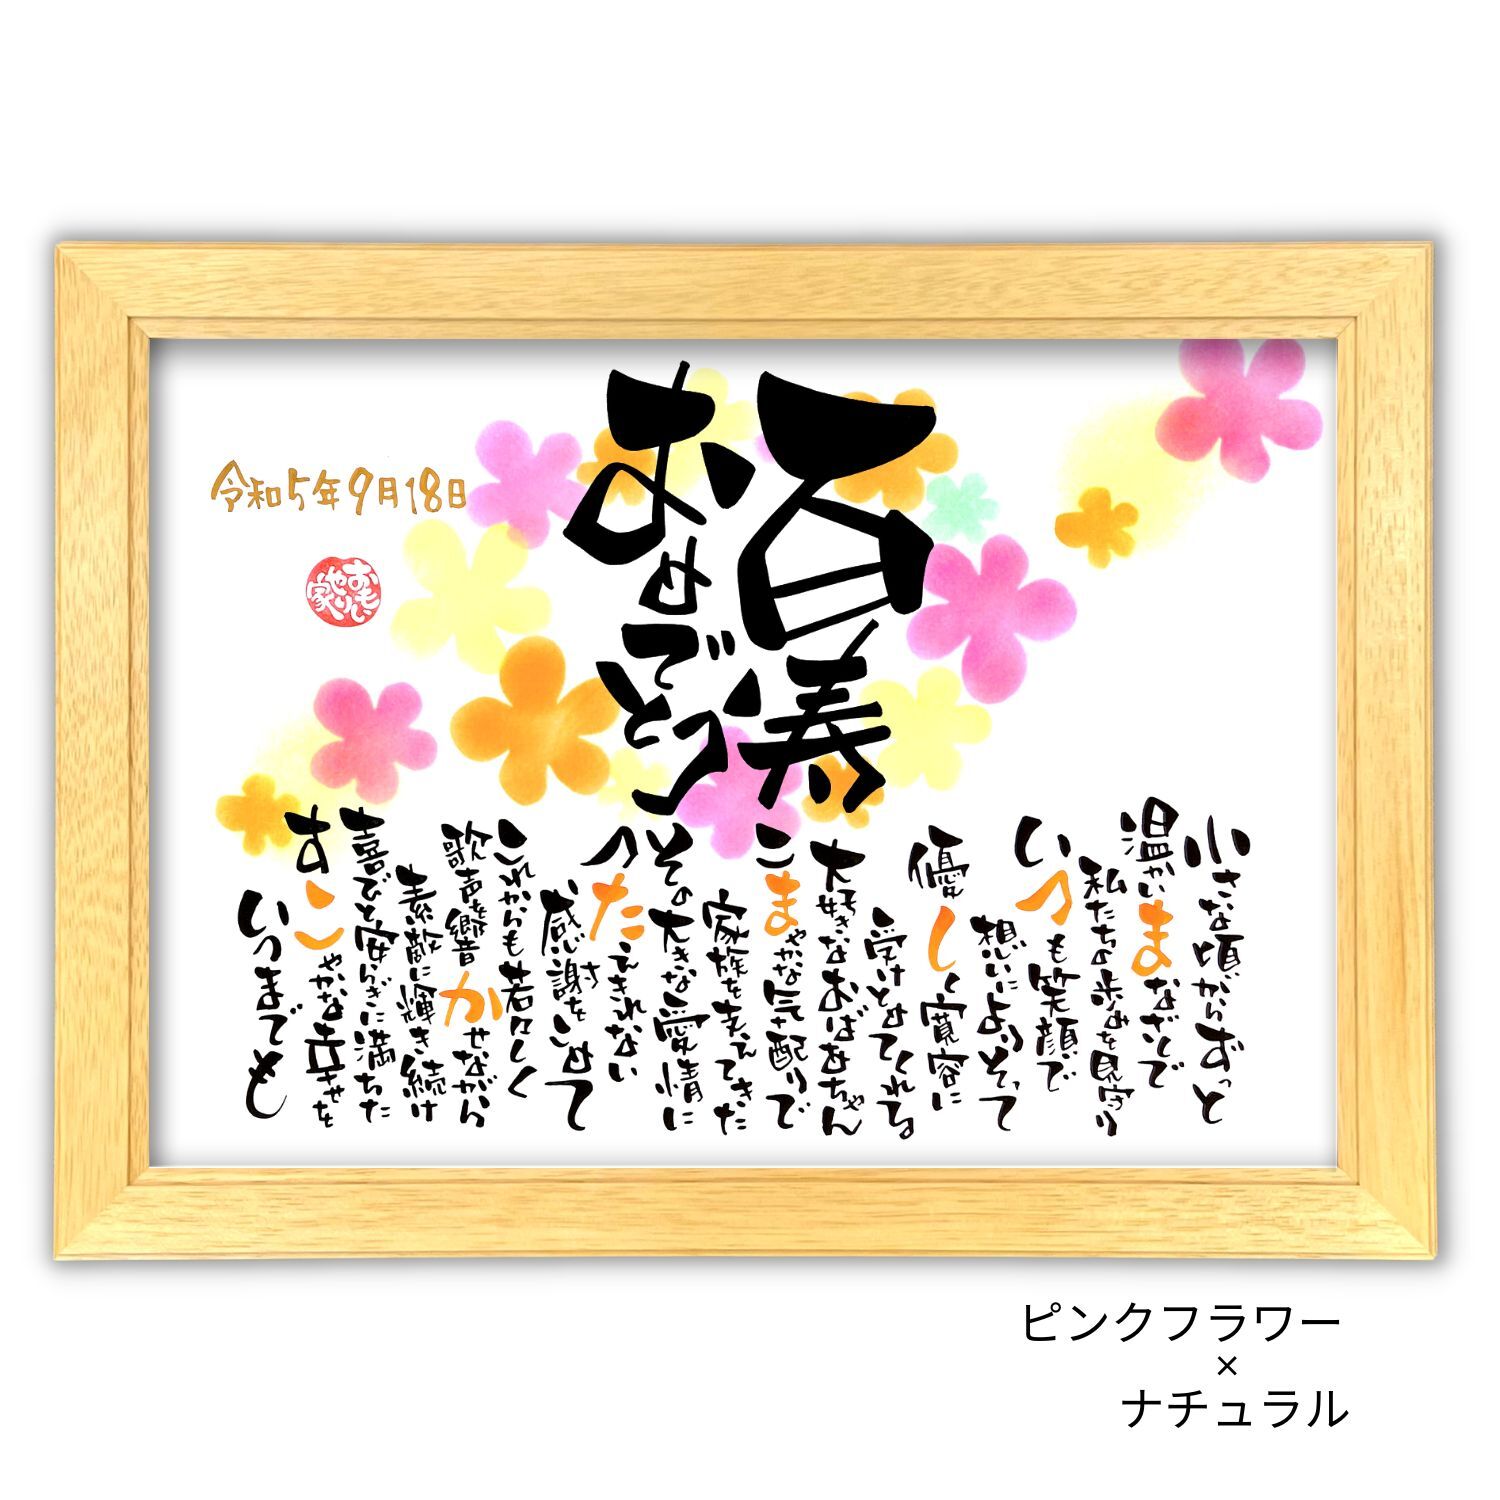 百寿
おめでとう
令和5年9月18日
おもい
やり
家
小さな頃からずっと
温かいまなざしで
私たちの歩みを見守り
いつも笑顔で
想いによりそって
優しく寛容に
受けとめてくれる
大好きなおばあちゃん
こまやかな気配りで
家族を支えてきた
その大きな愛情に
つたえきれない
感謝をこめて
これからも若々しく
歌声を響かせながら
素敵に輝き続け
喜びと安らぎに満ちた
すこやかな幸せを
いつまでも
ピンクフラワー
×
ナチュラル